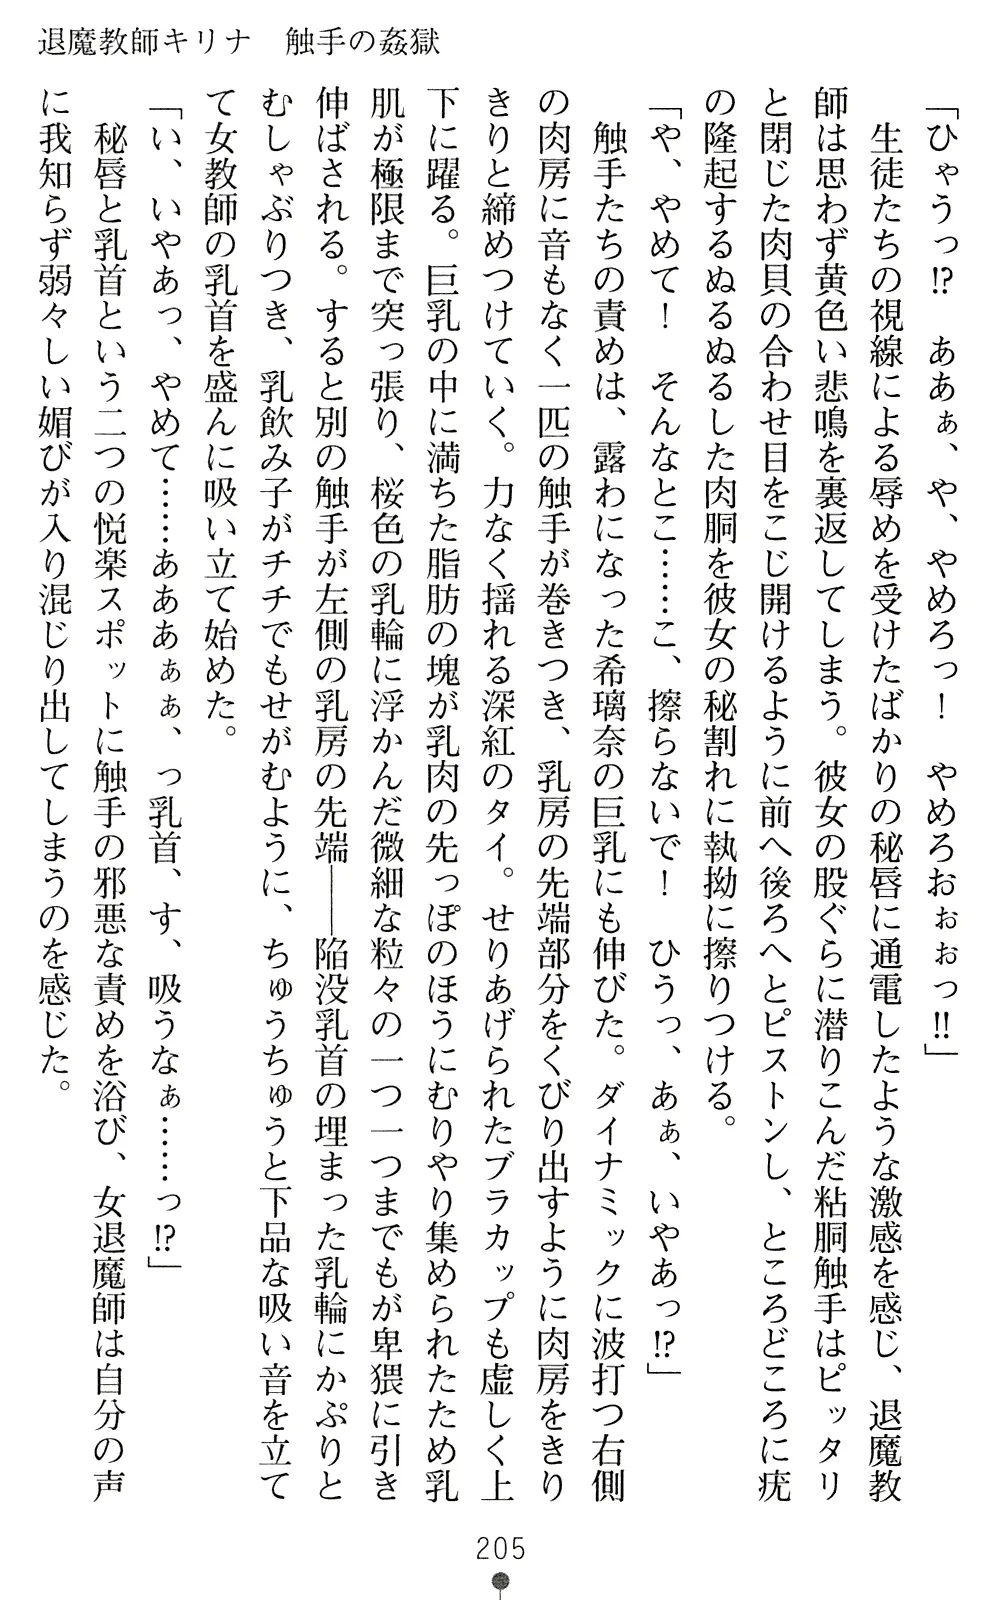 退魔教師キリナ　触手の姦獄
「ひゃうっ!?　ああぁ、や、やめろっ！　やめろおぉぉっ!!」
　生徒たちの視線による辱めを受けたばかりの秘唇に通電したような激感を感じ、退魔教
師は思わず黄色い悲鳴を裏返してしまう。彼女の股ぐらに潜りこんだ粘胴触手はピッタリ
と閉じた肉貝の合わせ目をこじ開けるように前へ後ろへとピストンし、ところどころに疣
の隆起するぬるぬるした肉胴を彼女の秘割れに執拗に擦りつける。
「や、やめて！　そんなとこ……こ、擦らないで！　ひうっ、あぁ、いやあっ!?」
　触手たちの責めは、露わになった希璃奈の巨乳にも伸びた。ダイナミックに波打つ右側
の肉房に音もなく一匹の触手が巻きつき、乳房の先端部分をくびり出すように肉房をきり
きりと締めつけていく。力なく揺れる深紅のタイ。せりあげられたブラカップも虚しく上
下に躍る。巨乳の中に満ちた脂肪の塊が乳肉の先っぽのほうにむりやり集められたため乳
肌が極限まで突っ張り、桜色の乳輪に浮かんだ微細な粒々の一つ一つまでもが卑猥に引き
伸ばされる。すると別の触手が左側の乳房の先端――陥没乳首の埋まった乳輪にかぷりと
むしゃぶりつき、乳飲み子がチチでもせがむように、ちゅうちゅうと下品な吸い音を立て
て女教師の乳首を盛んに吸い立て始めた。
「い、いやあっ、やめて……あああぁぁ、っ乳首、す、吸うなぁ……っ!?」
　秘唇と乳首という二つの悦楽スポットに触手の邪悪な責めを浴び、女退魔師は自分の声
に我知らず弱々しい媚びが入り混じり出してしまうのを感じた。
205